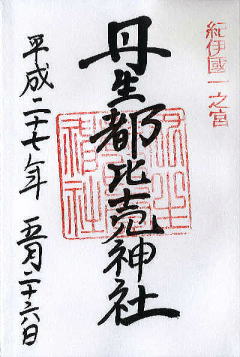 紀伊國一之宮
丹生都比売神社
平成二十七年 五月二十六日